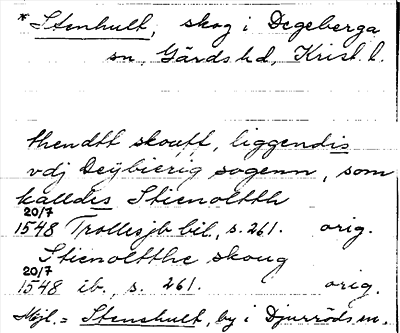 * Stenhult, skog i Degeberga
sn, Gärds hd, Krist. l.
thendtt skoufft, liggendis
vdj Deÿbierig sogenn, som
kalldis Stienoltth
20/7
1548 Trollesjb bil., s. 261. orig.
Stienoltthe skoug
20/7
1548 ib., s. 261. orig.
Möjl. = Stenshult, by i Djurröd, sn.